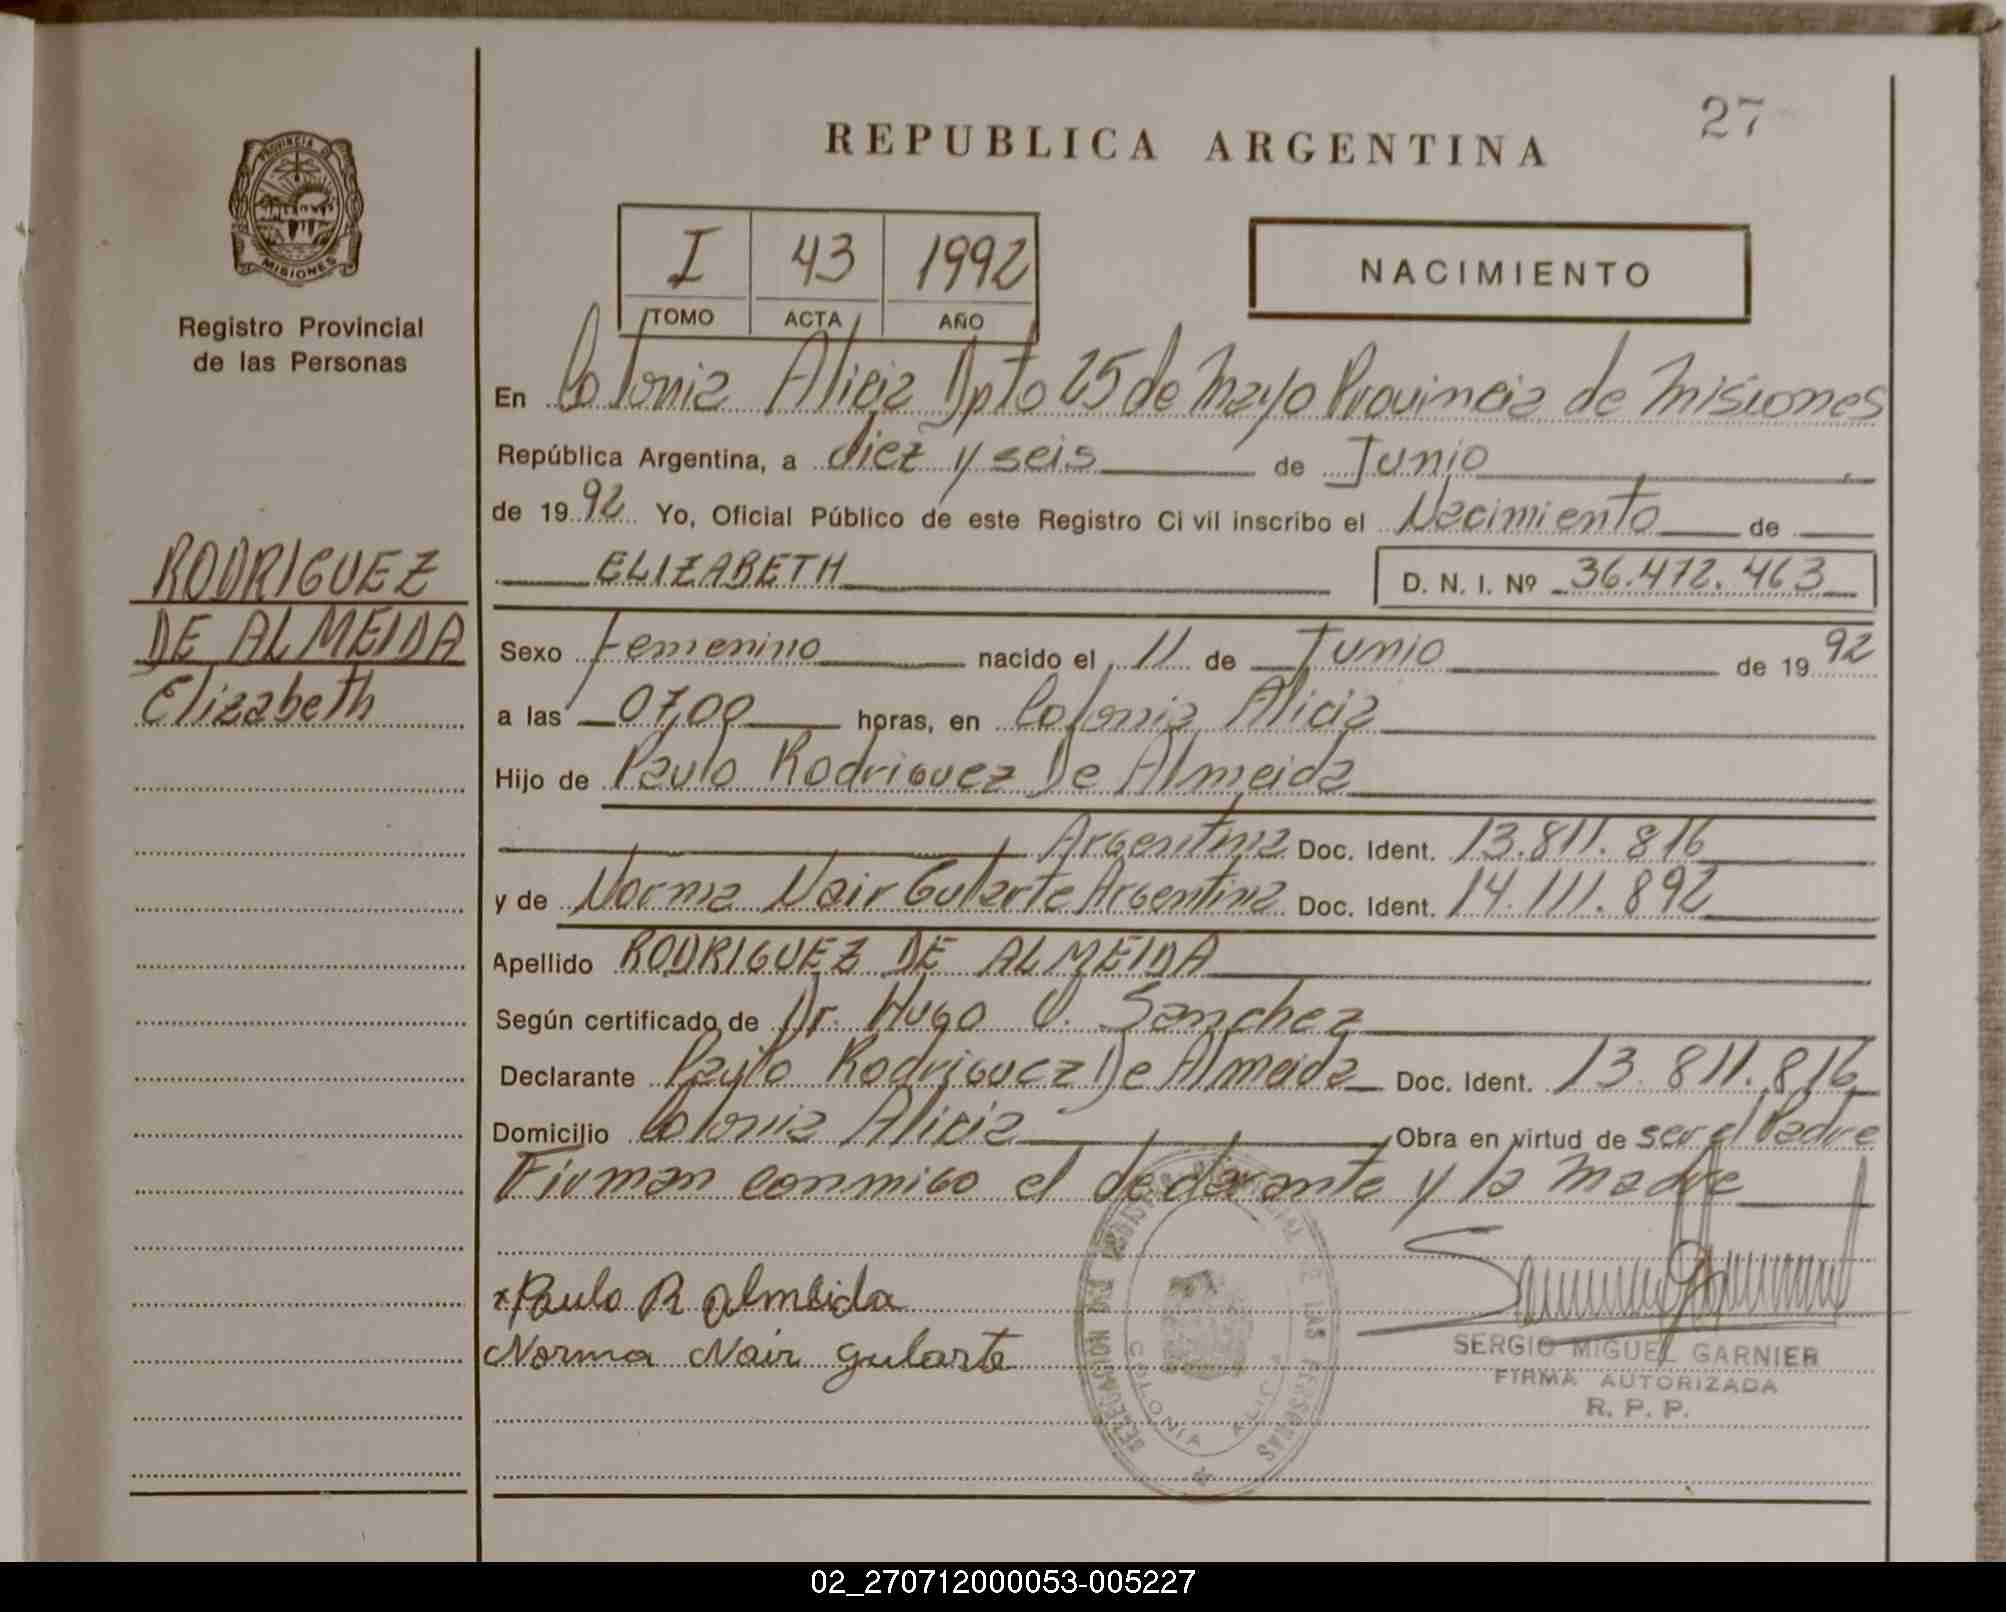 27
REPUBLICA ARGENTINA
PROVINCIA DE
MISIONES
Registro Provincial
de las Personas
I 43 1992
TOMO ACTA AÑO
NACIMIENTO
En Colonia Alicia Dpto 25 de Mayo Provincia de Misiones
República Argentina, a diez y seis de Junio
de 1992 Yo, Oficial Público de este Registro Civil inscribo el Nacimiento de
ELIZABETH D. N. I. Nº 36.472.463
RODRIGUEZ
DE ALMEIDA
Elizabeth
Sexo Femenino nacido el 11 de Junio de 1992
a las 07,00 horas, en Colonia Alicia
Hijo de Paulo Rodriguez De Almeida
Argentina Doc. Ident. 13.811.816
y de Norma Nair Gularte Argentina Doc. Ident. 14.111.892
Apellido RODRIGUEZ DE ALMEIDA
Según certificado de Dr. Hugo O. Sanchez
Declarante Paulo Rodriguez De Almeida Doc. Ident. 13.811.816
Domicilio Colonia Alicia Obra en virtud de ser el Padre
Firman conmigo el declarante y la Madre
x Paulo R Almeida
Norma Nair Gularte
DELEGACION DEL REGISTRO PROVINCIAL DE LAS PERSONAS
COLONIA ALICIA
SERGIO MIGUEL GARNIER
FIRMA AUTORIZADA
R. P. P.
02_270712000053-005227